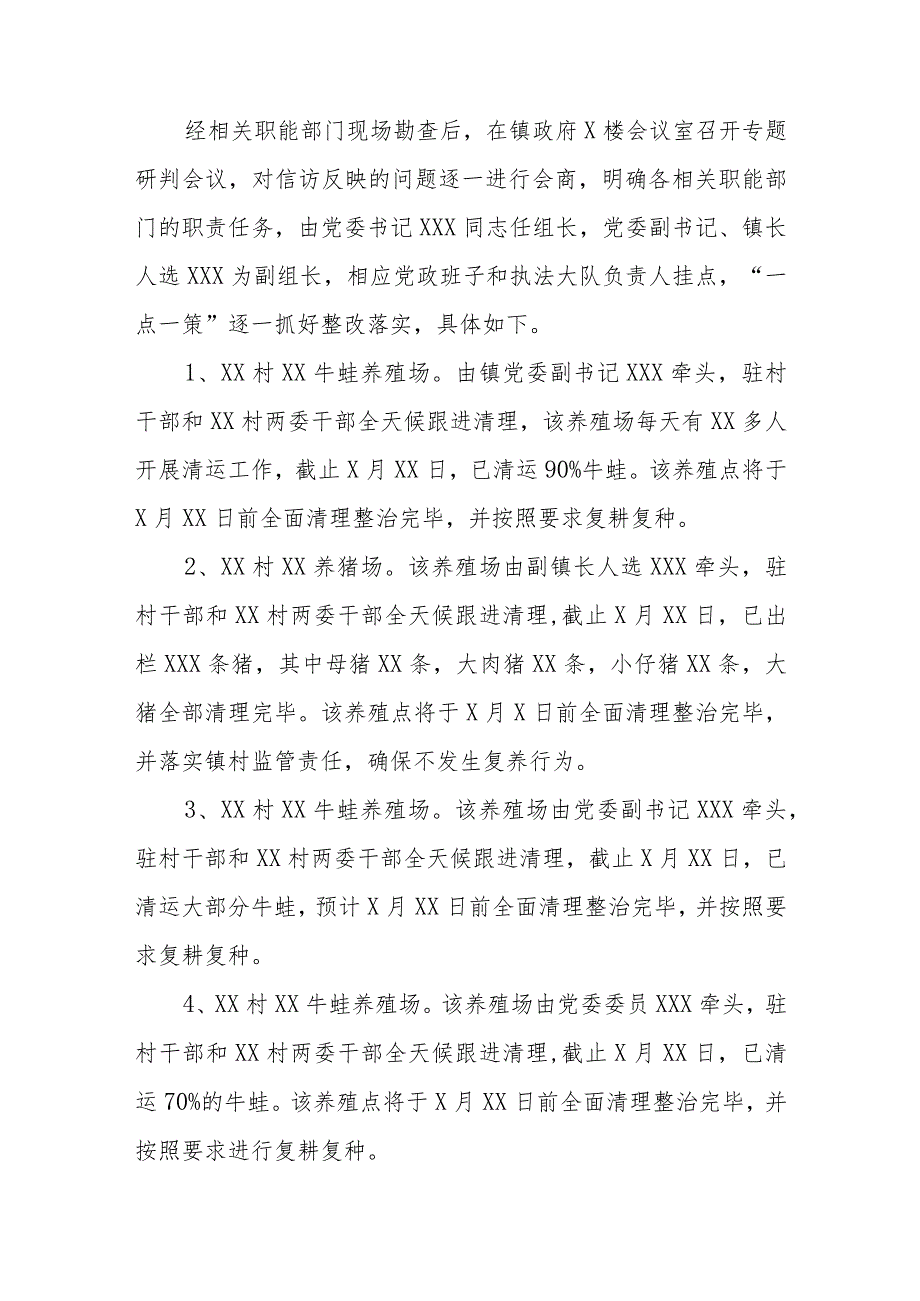 经相关职能部门现场勘查后，在镇政府X楼会议室召开专题
研判会议，对信访反映的问题逐一进行会商，明确各相关职能部
门的职责任务，由党委书记XXX同志任组长，党委副书记、镇长
人选XXX为副组长，相应党政班子和执法大队负责人挂点，“一
点一策”逐一抓好整改落实，具体如下。
1、XX村XX牛蛙养殖场。由镇党委副书记XXX牵头，驻村
干部和XX村两委干部全天候跟进清理，该养殖场每天有XX多人
开展清运工作，截止X月XX日，已清运90%牛蛙。该养殖点将于
X月XX日前全面清理整治完毕，并按照要求复耕复种。
2、XX村XX养猪场。该养殖场由副镇长人选XXX牵头，驻
村干部和XX村两委干部全天候跟进清理,截止X月XX日，已出
栏XXX条猪，其中母猪XX条，大肉猪XX条，小仔猪XX条，大
猪全部清理完毕。该养殖点将于X月X日前全面清理整治完毕，
并落实镇村监管责任，确保不发生复养行为。
3、XX村XX牛蛙养殖场。该养殖场由党委副书记XXX牵头，
驻村干部和XX村两委干部全天候跟进清理，截止X月XX日，已
清运大部分牛蛙，预计X月XX日前全面清理整治完毕，并按照要
求复耕复种。
4、XX村XX牛蛙养殖场。该养殖场由党委委员XXX牵头，驻
村干部和XX村两委干部全天候跟进清理,截止X月XX日，已清
运70%的牛蛙。该养殖点将于X月XX日前全面清理整治完毕，并
按照要求进行复耕复种。